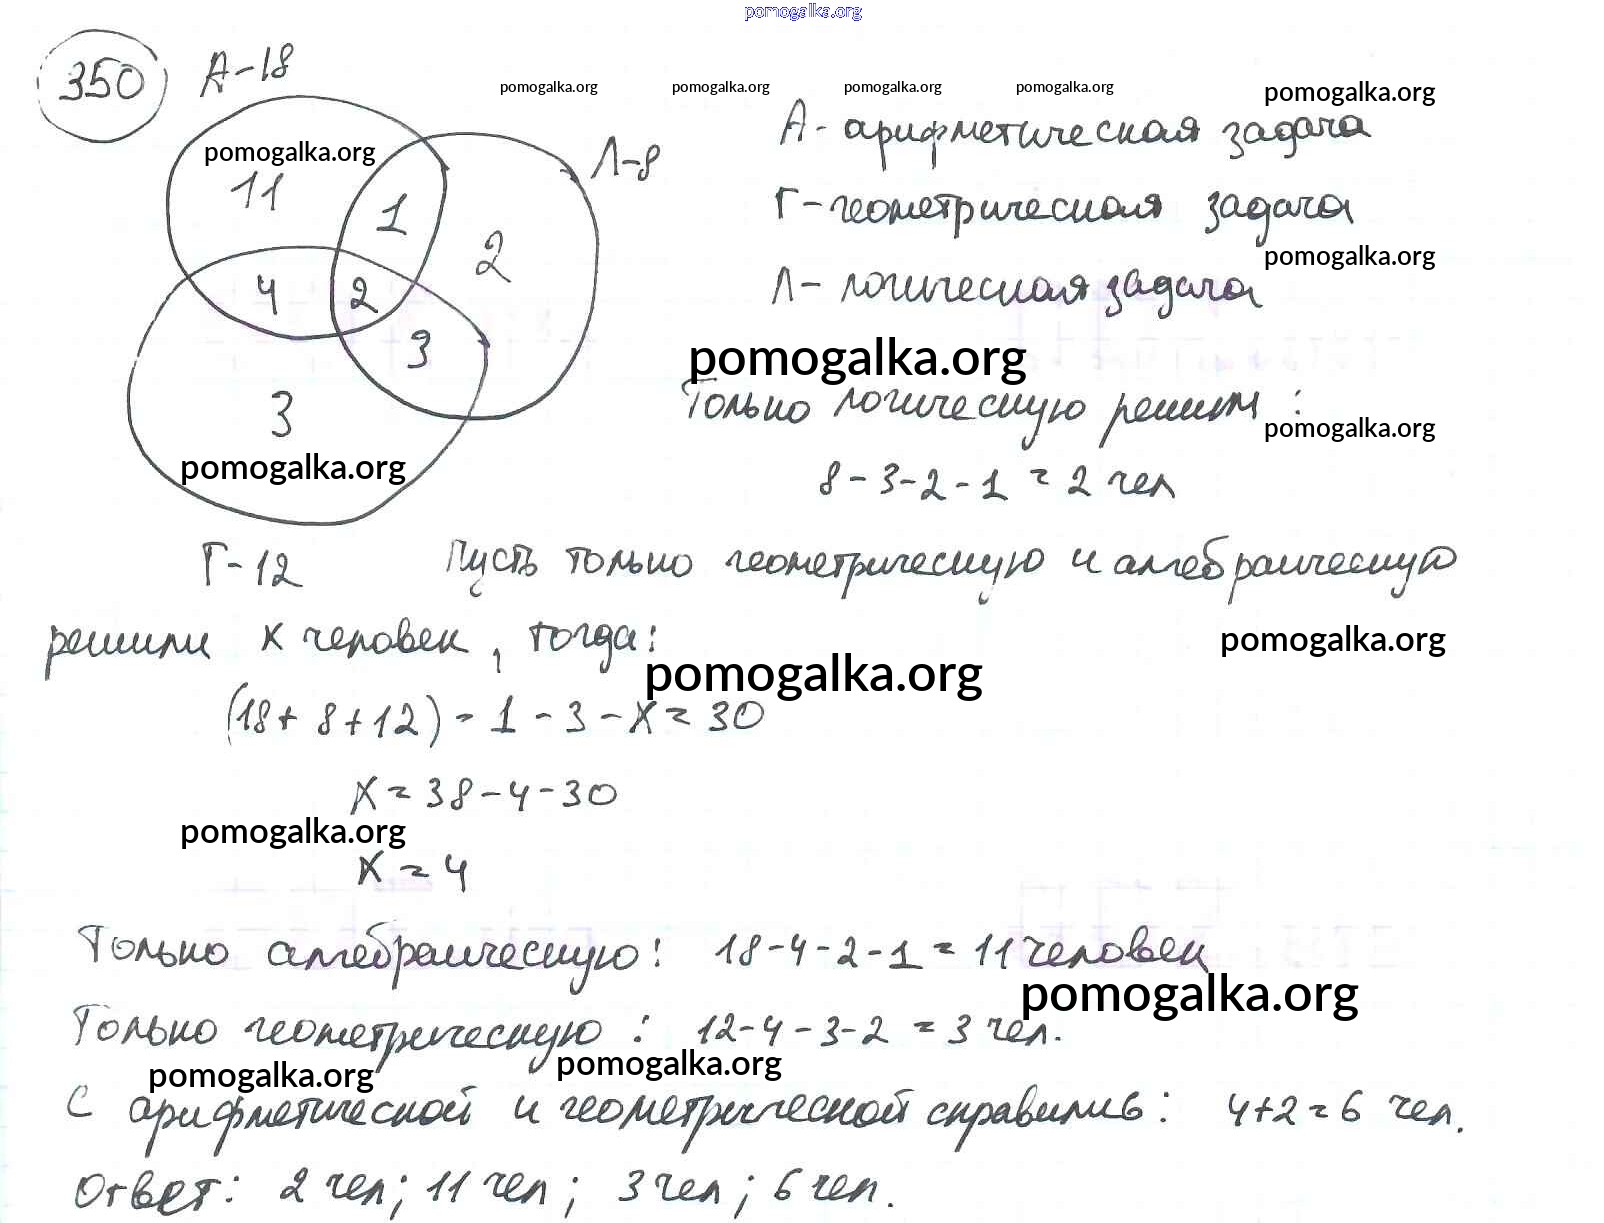 pomogalka.org
350 А-18
pomogalka.org pomogalka.org pomogalka.org pomogalka.org pomogalka.org
А- арифметическая задача
pomogalka.org
Л-8
11
1
Г-геометрическая задача
2
pomogalka.org
4
2
Л- логическая задача
3
pomogalka.org
Только логическую решили:
3
pomogalka.org
pomogalka.org
8-3-2-1=2 чел
Г-12
Пусть только геометрическую и алгебраическую
решили х человек, тогда:
pomogalka.org
pomogalka.org
(18+8+12)-1-3-х=30
х=38-4-30
pomogalka.org
х=4
Только алгебраическую: 18-4-2-1=11 человек
pomogalka.org
Только геометрическую: 12-4-3-2=3 чел.
pomogalka.org pomogalka.org
С арифметической и геометрической справились: 4+2=6 чел.
Ответ: 2 чел; 11 чел; 3 чел; 6 чел.